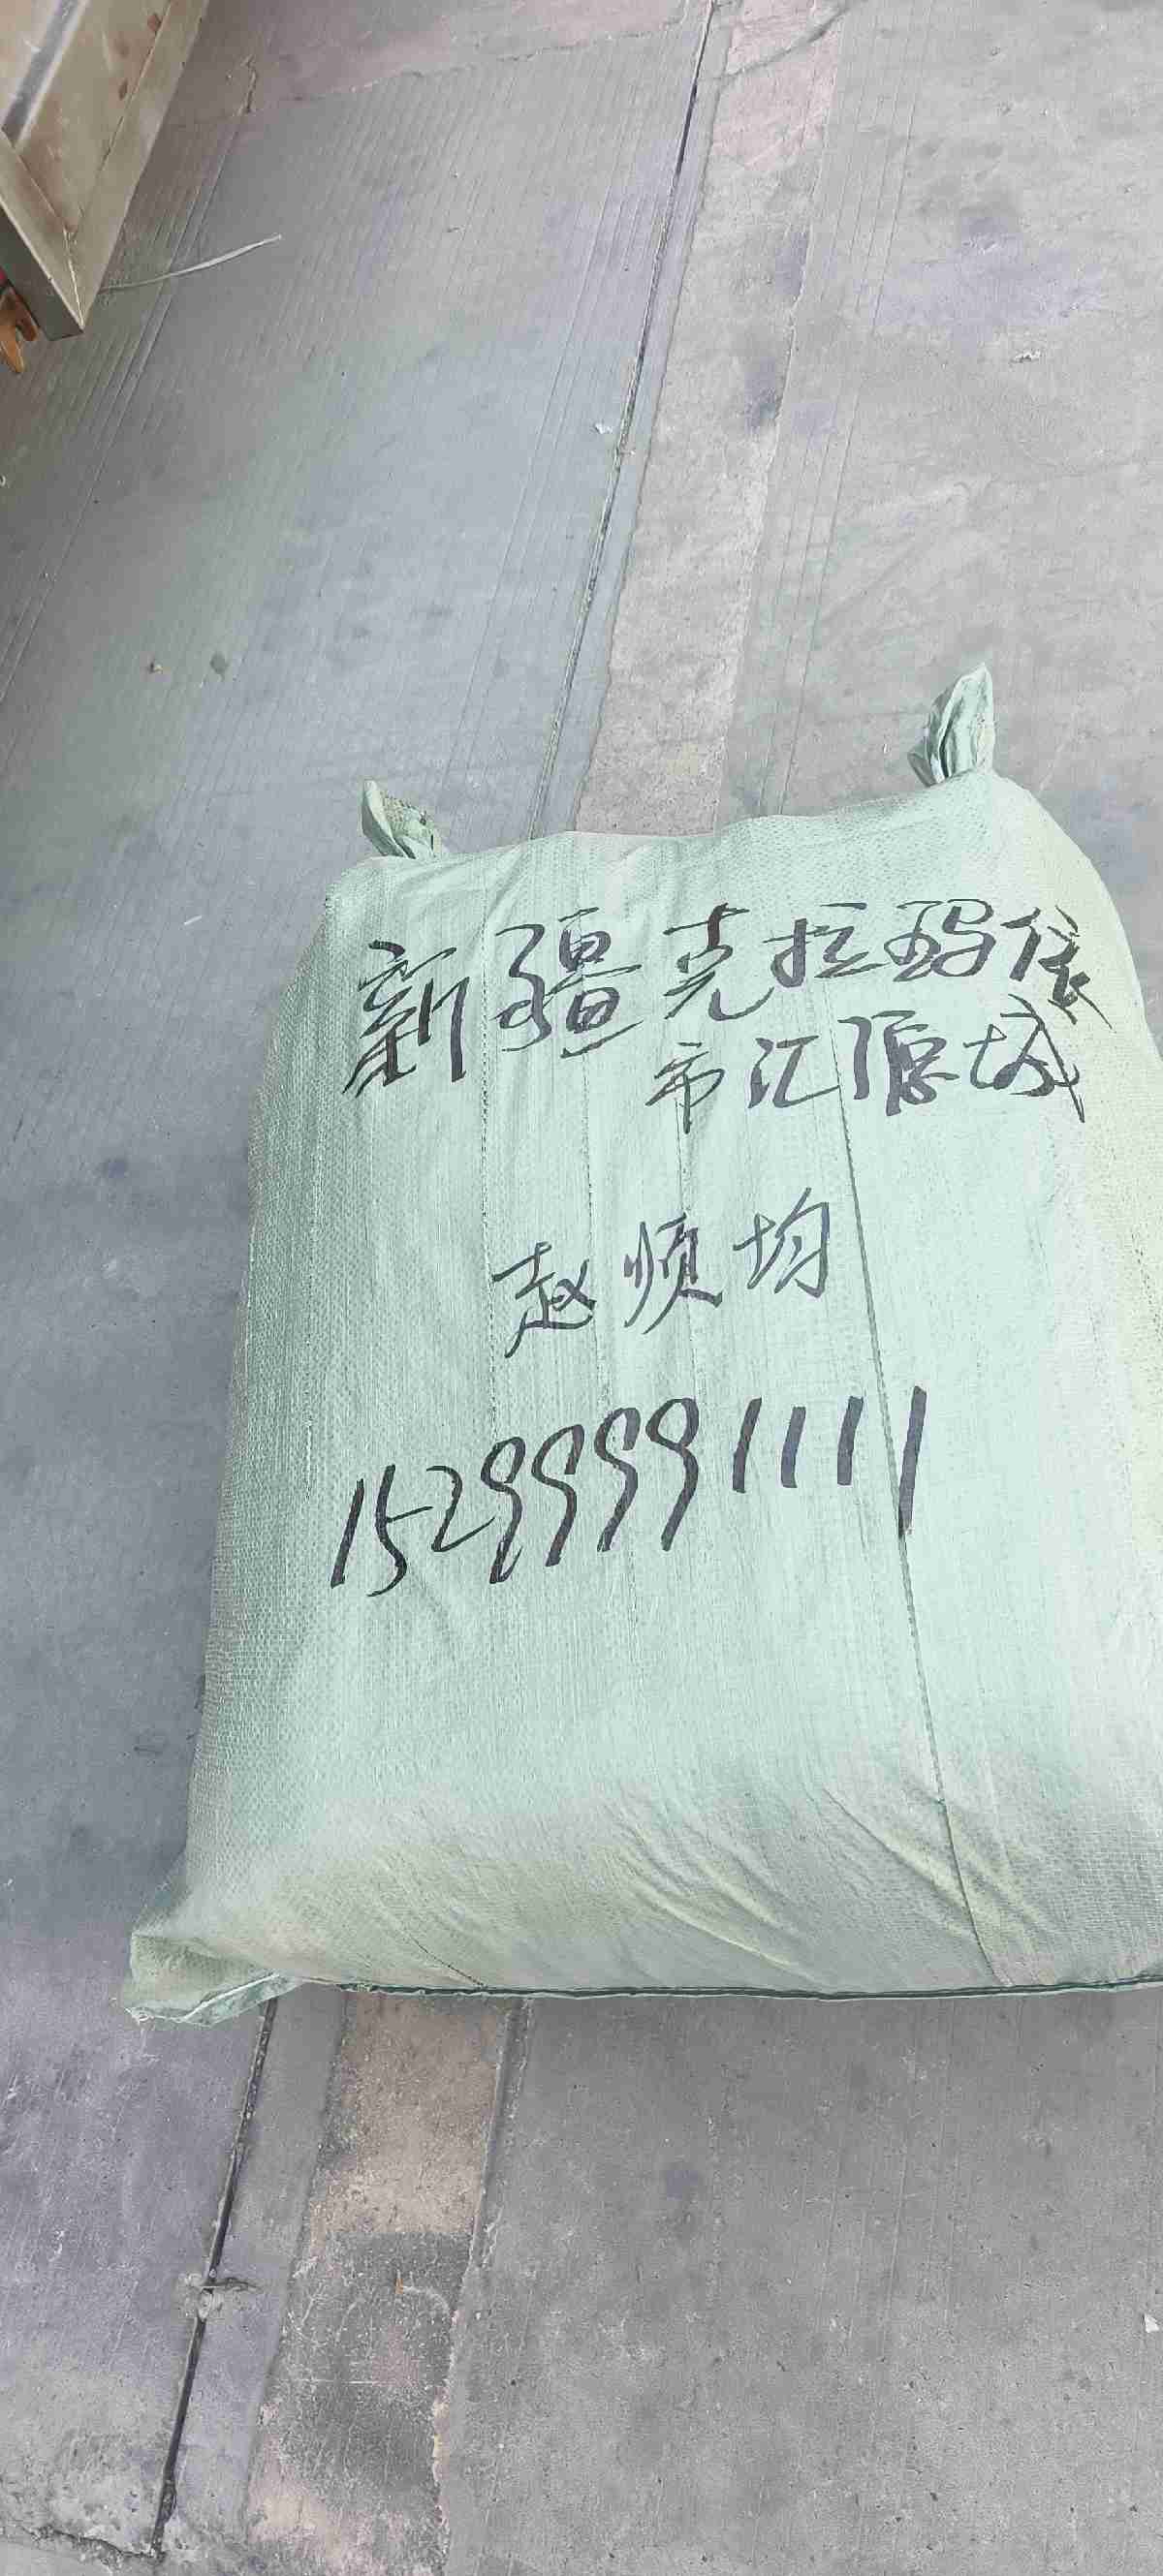 新疆克拉玛依
市汇源城
赵顺均
15299991111